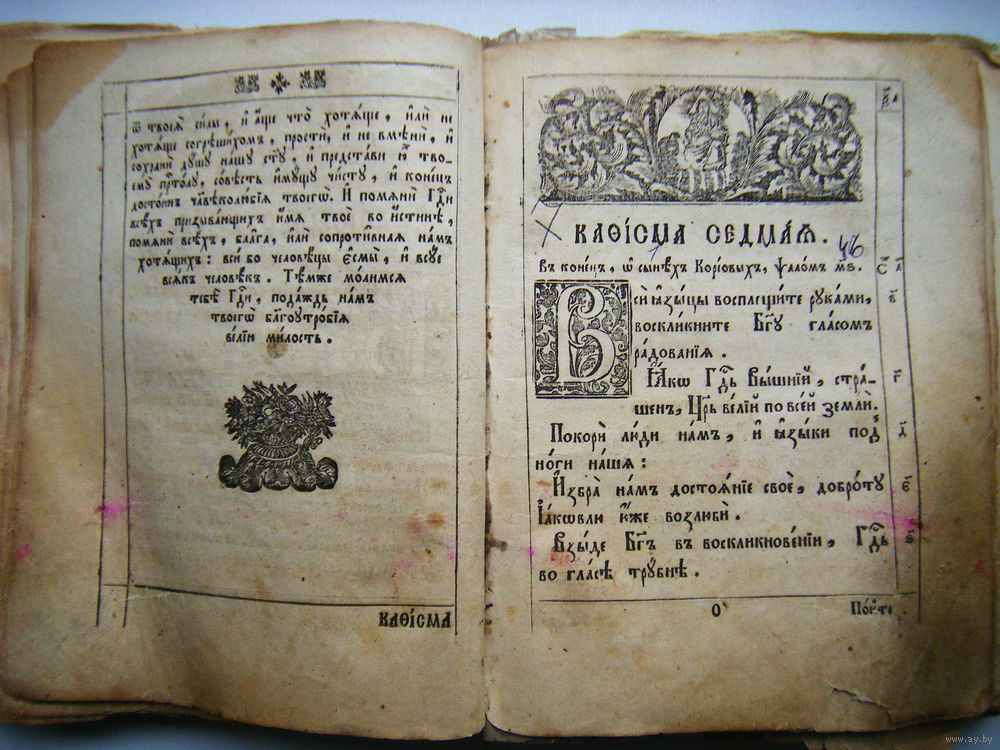 ѿ твоеѧ̀ си́лы, и҆ а҆́ще что̀ хотѧ́ще, и҆лѝ не
хотѧ́ще согрѣши́хомъ, простѝ, и҆ не вмѣнѝ, и҆
сохранѝ дꙋ́шꙋ на́шꙋ ст҃ꙋ, и҆ предста́ви ю҆̀ тво-
емꙋ̀ прⷭ҇то́лꙋ, со́вѣсть и҆мꙋ́щꙋ чи́стꙋ, и҆ коне́цъ
досто́инъ чл҃вѣколю́бїѧ твоегѡ̀. И҆ помѧнѝ Гдⷭ҇и
всѣ́хъ призыва́ющихъ и҆́мѧ твоѐ во и҆́стинѣ,
помѧнѝ всѣ́хъ, бл҃га̑, и҆лѝ сопроти̑внаѧ на́мъ
хотѧ́щихъ : всѝ бо человѣ́цы є҆смы̀, и҆ всꙋ́е
всѧ́къ человѣ́къ. Тѣ́мже мо́лимсѧ
тебѣ̀ Гдⷭ҇и, пода́ждь на́мъ
твоегѡ̀ бл҃гоꙋтро́бїѧ
ве́лїю ми́лость.
КАѲІ́СМА
КАѲІ́СМА СЕДМА́Ѧ.
Въ коне́цъ, ѡ҆ сынѣ́хъ Коре́овыхъ, ѱало́мъ м҃ѕ.
46
Всѝ ꙗ҆зы́цы восплещи́те рꙋка́ми,
воскли́кните Бг҃ꙋ гла́сомъ
ра́дованїѧ.
Ꙗ҆́кѡ Гдⷭ҇ь Вы́шнїй, стра́-
шенъ, Цр҃ь ве́лїй по все́й землѝ.
Покорѝ лю́ди на́мъ, и҆ ꙗ҆зы́ки под̾
но́ги на́шѧ :
И҆збра̀ на́мъ достоѧ́нїе своѐ, добро́тꙋ
І҆а́кѡвлю ю҆́же возлюбѝ.
Взы́де Бг҃ъ въ воскликнове́нїи, Гдⷭ҇ь
во гла́сѣ трꙋ́бнѣ.
О
По́йте
www.ay.by